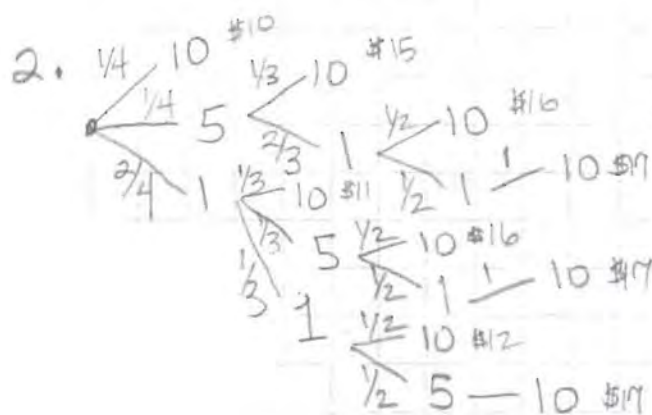 2. 1/4 10 $10
1/4 5 1/3 10 $15
2/3 1 1/2 10 $16
1/2 1 1 10 $17
2/4 1 1/3 10 $11
1/3 5 1/2 10 $16
1/2 1 1 10 $17
1/3 1 1/2 10 $12
1/2 5 10 $17